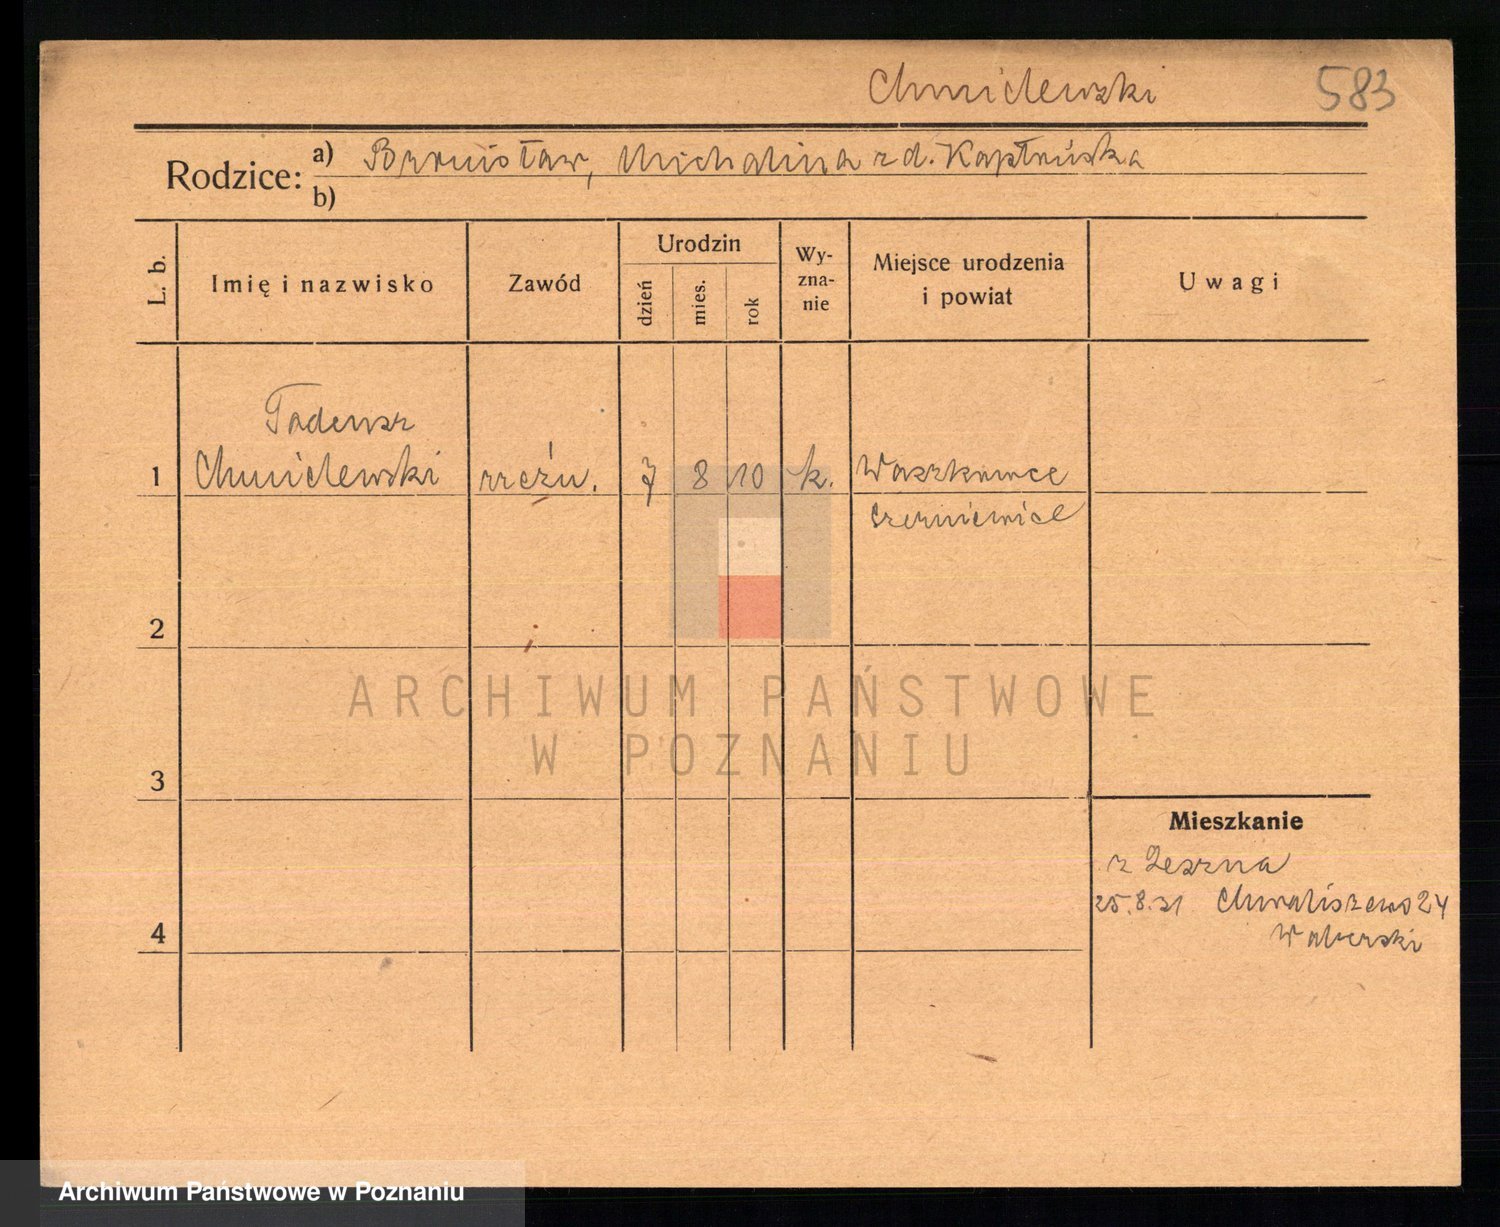 Chmielewski 583
Rodzice: a) Bronisław, Michalina z d. Kapłańska
b)
L. b. Imię i nazwisko Zawód Urodzin dzień mies. rok Wy-zna-nie Miejsce urodzenia i powiat Uwagi
Tadeusz
1 Chmielewski rzeźn. 7 8 10 k. Waszkowce
Czerniowice
2
3
ARCHIWUM PAŃSTWOWE
W POZNANIU
Mieszkanie
z Leszna
25.8.31 Chwaliszewo 24
4 Walerski
Archiwum Państwowe w Poznaniu